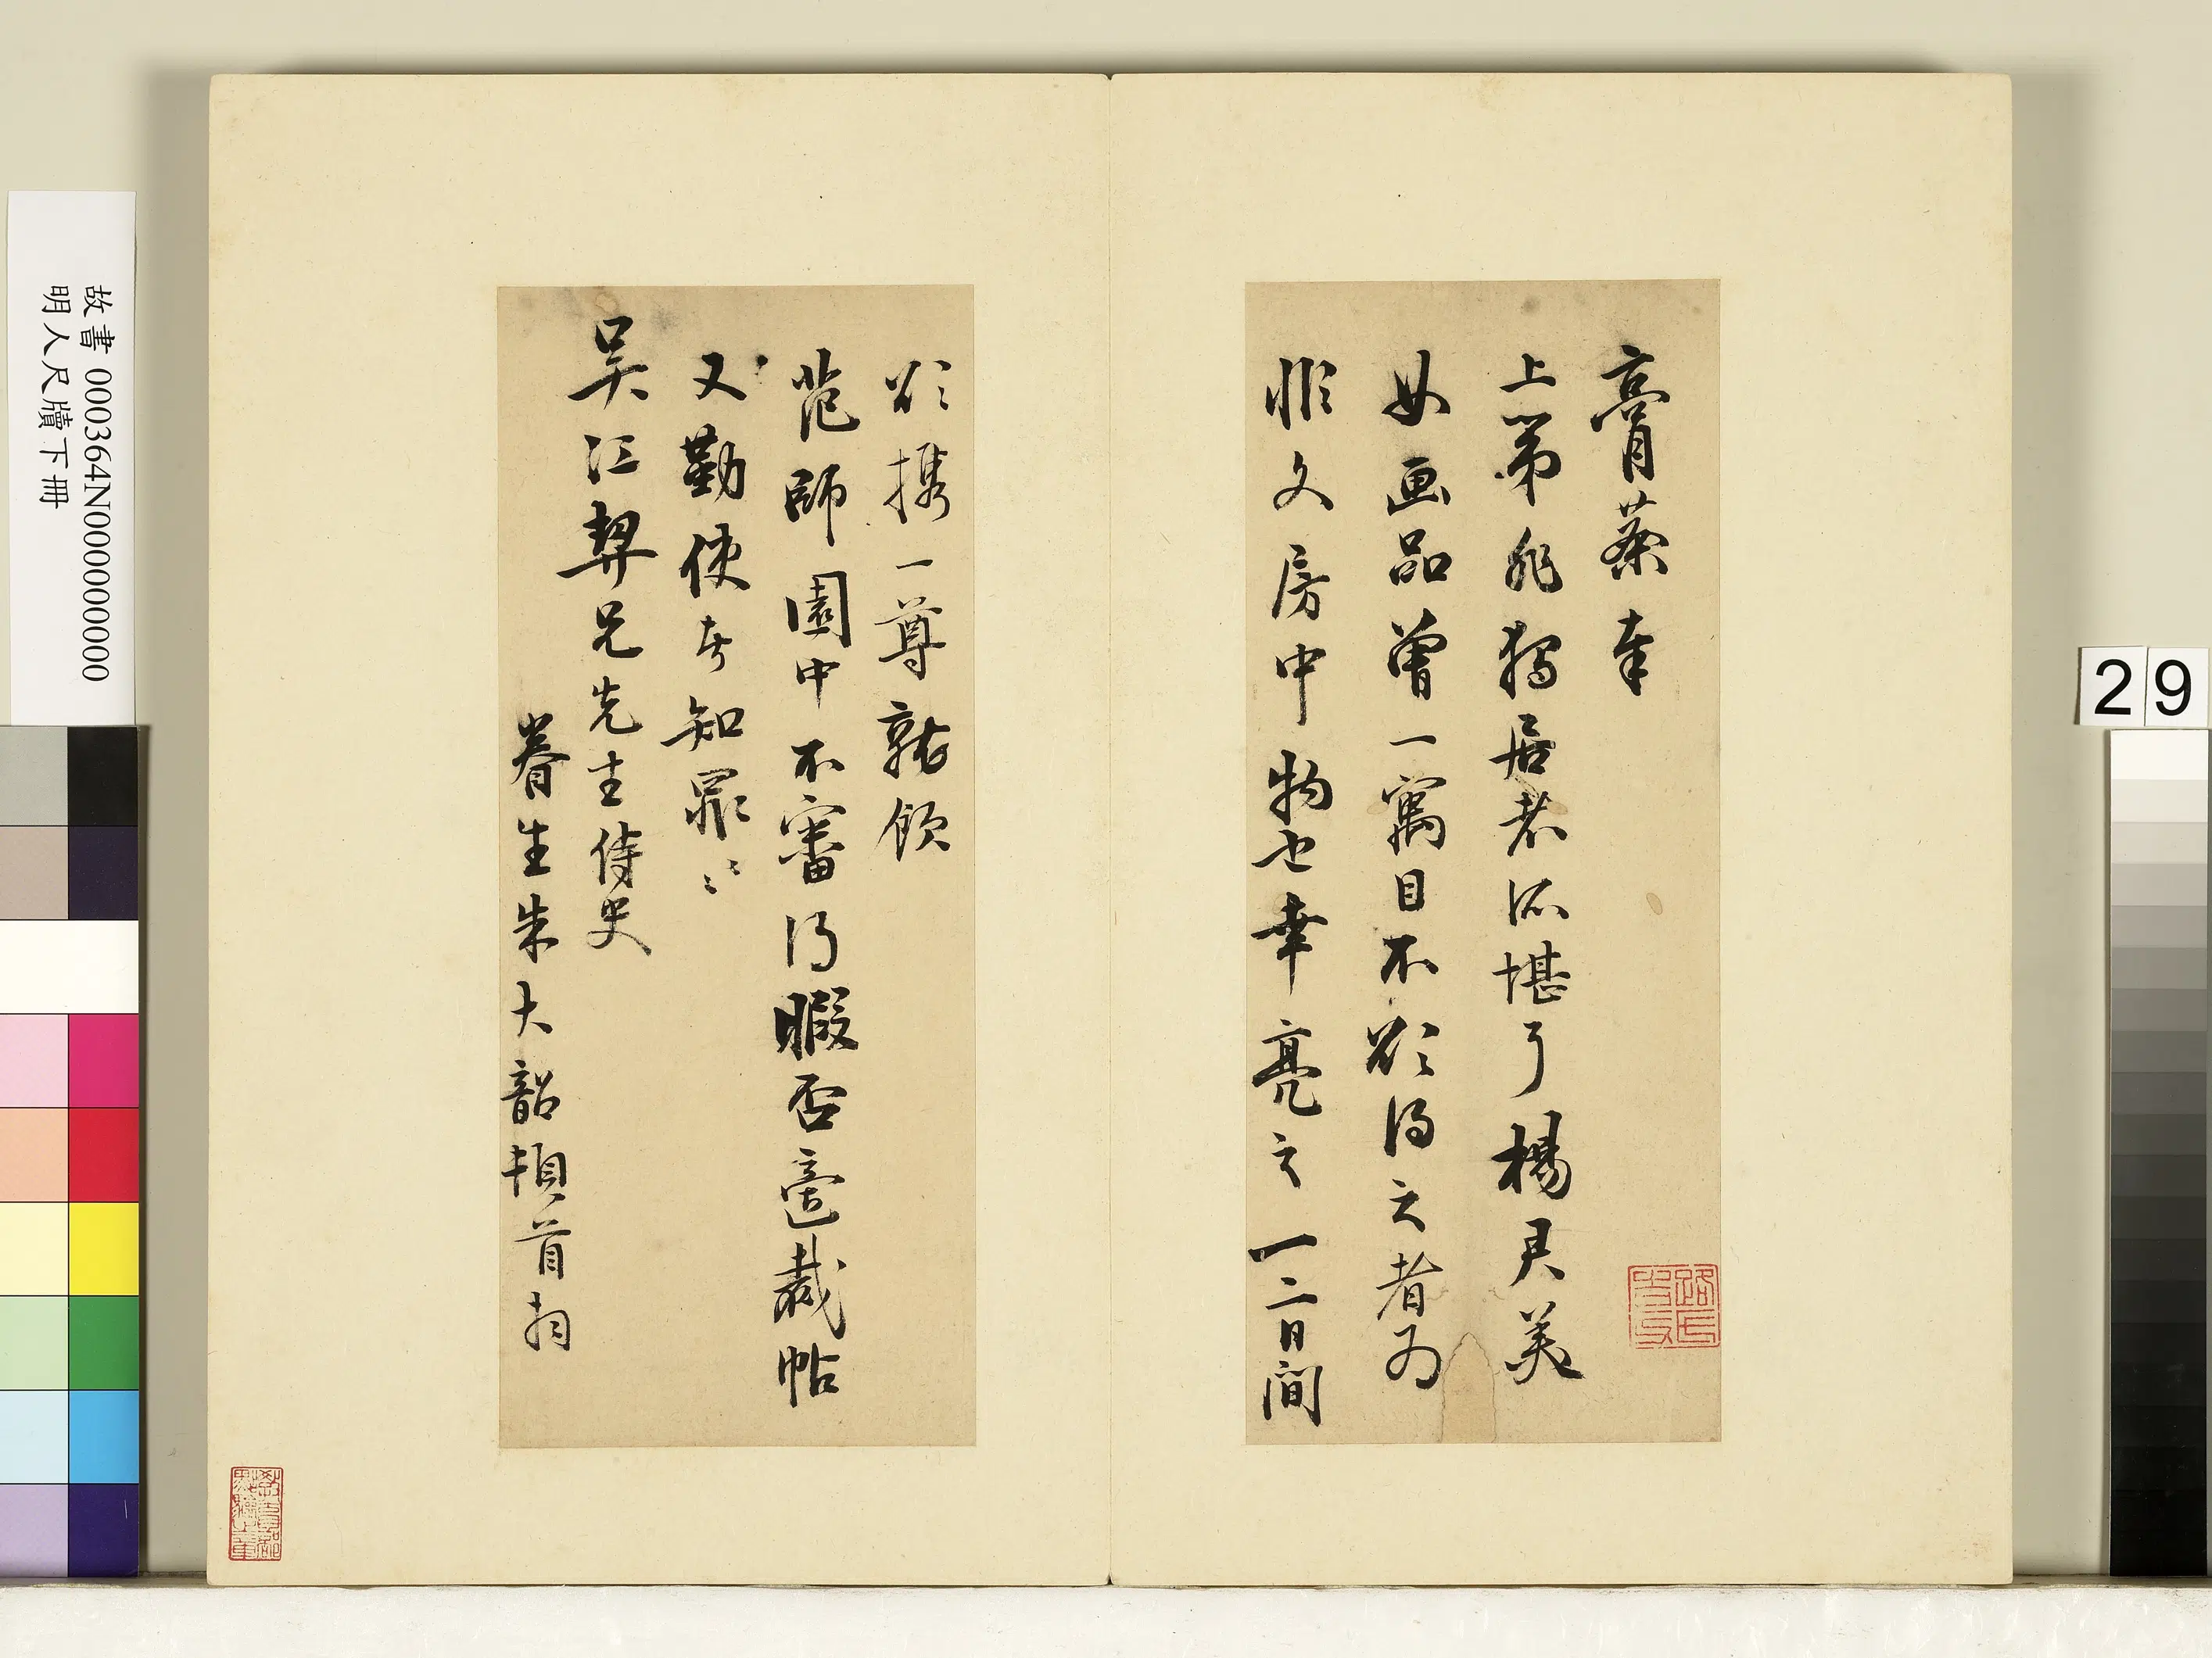 膏茶奉
上第非獨居者所堪了楊君美
女画品曾一寓目不欲得之者為
非文房中物也幸亮之一二日間
欲携一尊就飲
範師園中不審得暇否啚裁帖
又勤使者知罪〻
吳江契兄先生侍史
眷生朱大韶頓首
故書 000364N000000000
明人尺牘下冊
29